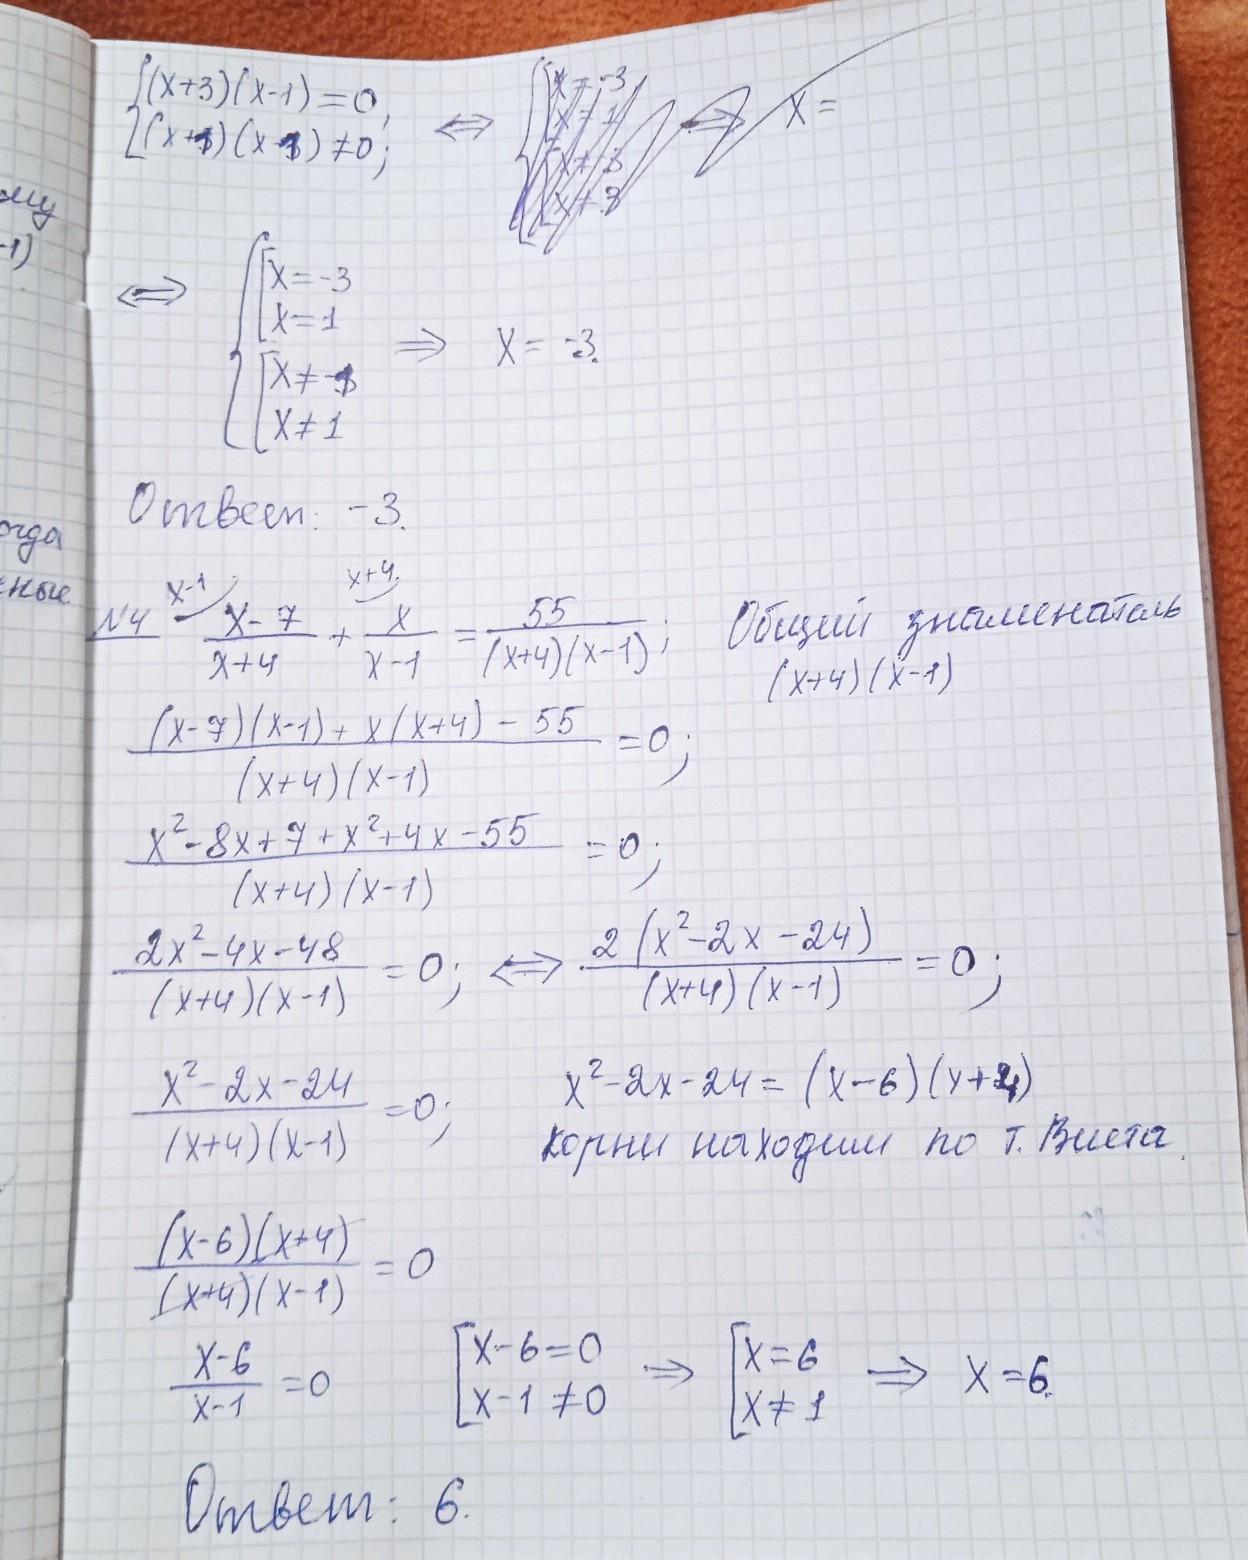 {(x+3)(x-1)=0,
(x+1)(x-1)≠0; ⟺ x=
⟺ {[x=-3
x=1
[x≠-1
x≠1 ⟹ x=-3.
Ответ: -3.
№4 x-1⁠ (x-7)/(x+4) + x+4⁠ x/(x-1) = 55/((x+4)(x-1)); Общий знаменатель
(x+4)(x-1)
((x-7)(x-1)+x(x+4)-55)/((x+4)(x-1)) =0;
(x²-8x+7+x²+4x-55)/((x+4)(x-1)) =0;
(2x²-4x-48)/((x+4)(x-1)) =0; ⟺ (2(x²-2x-24))/((x+4)(x-1)) =0;
(x²-2x-24)/((x+4)(x-1)) =0; x²-2x-24=(x-6)(x+4)
корни находим по т. Виета.
((x-6)(x+4))/((x+4)(x-1)) =0
(x-6)/(x-1) =0 [x-6=0
x-1≠0 ⟹ [x=6
x≠1 ⟹ x=6.
Ответ: 6.
ому
-1)
огда
ные